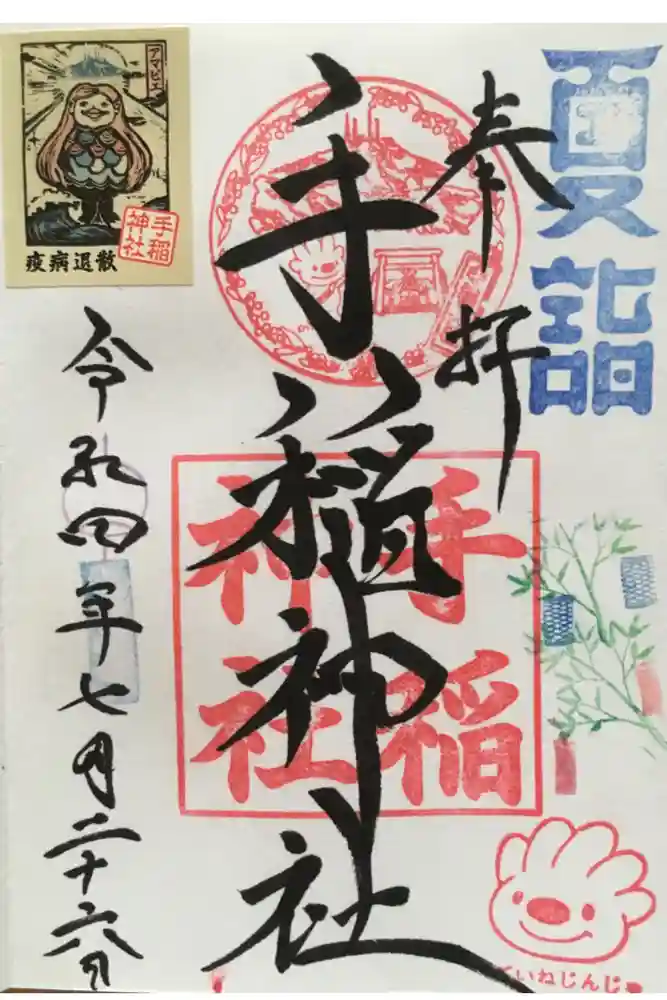 夏詣
奉拝
手稲神社
手稲
神社
ていねじんじゃ
令和四年七月二十六日
アマビエ
手稲
神社
疫病退散